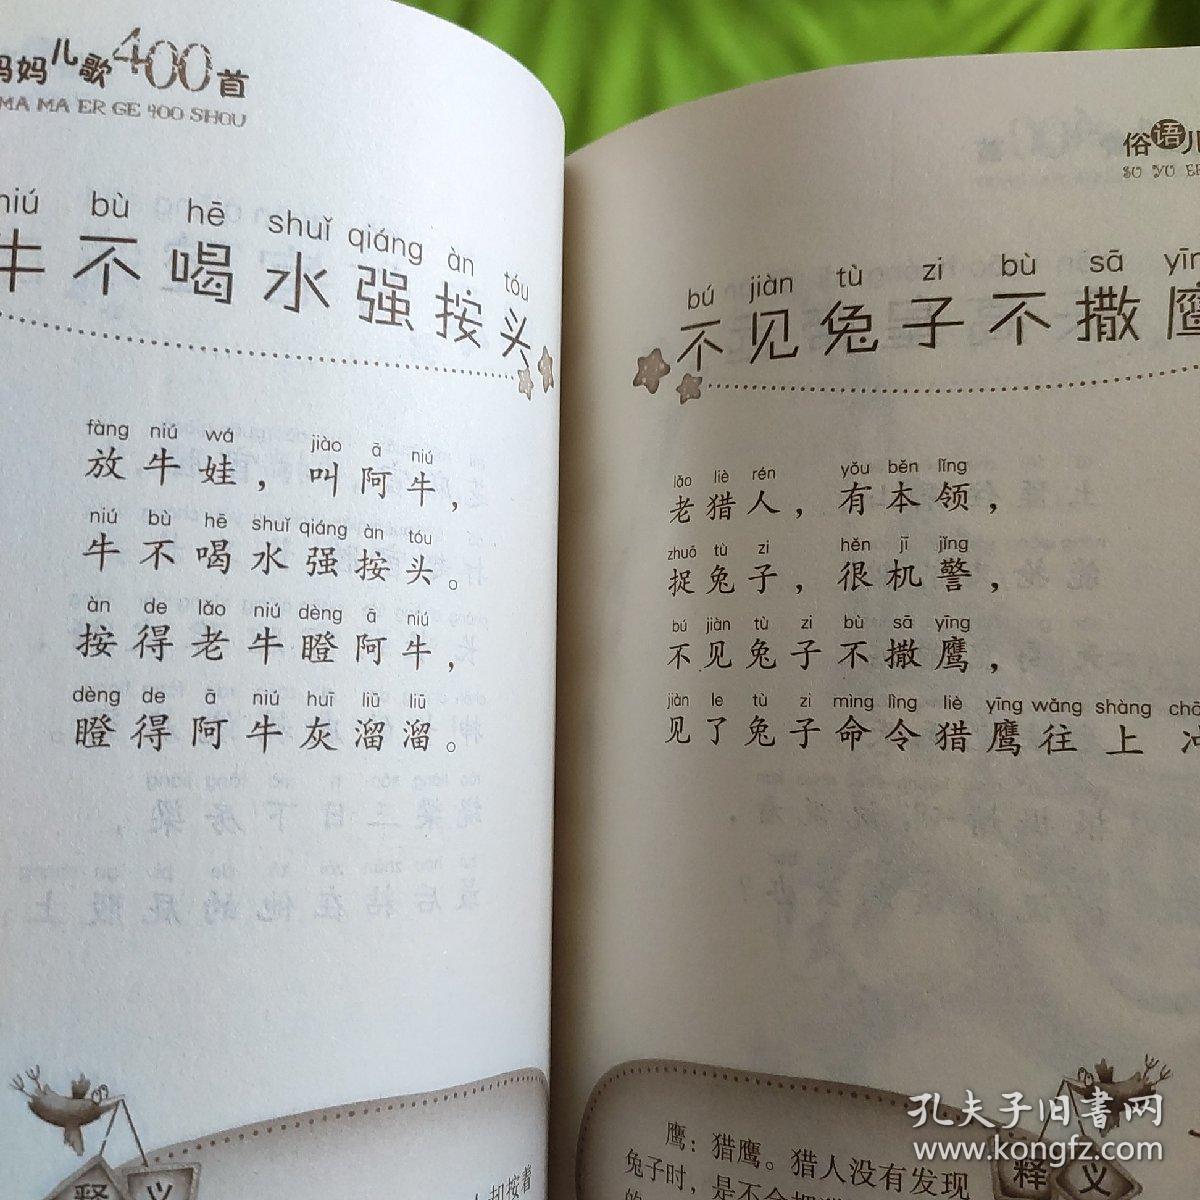 妈妈儿歌400首
MA MA ER GE 400 SHOU
niú bù hē shuǐ qiáng àn tóu
牛不喝水强按头
fàng niú wá jiào ā niú
放牛娃，叫阿牛，
niú bù hē shuǐ qiáng àn tóu
牛不喝水强按头。
àn de lǎo niú dèng ā niú
按得老牛瞪阿牛，
dèng de ā niú huī liū liū
瞪得阿牛灰溜溜。
释义
却按着
俗语儿
SU YU ER
bú jiàn tù zi bù sā yīng
不见兔子不撒鹰
lǎo liè rén yǒu běn lǐng
老猎人，有本领，
zhuō tù zi hěn jī jǐng
捉兔子，很机警，
bú jiàn tù zi bù sā yīng
不见兔子不撒鹰，
jiàn le tù zi mìng lìng liè yīng wǎng shàng chō
见了兔子命令猎鹰往上冲
释义
鹰：猎鹰。猎人没有发现
兔子时，是不会把
孔夫子旧书网
www.kongfz.com